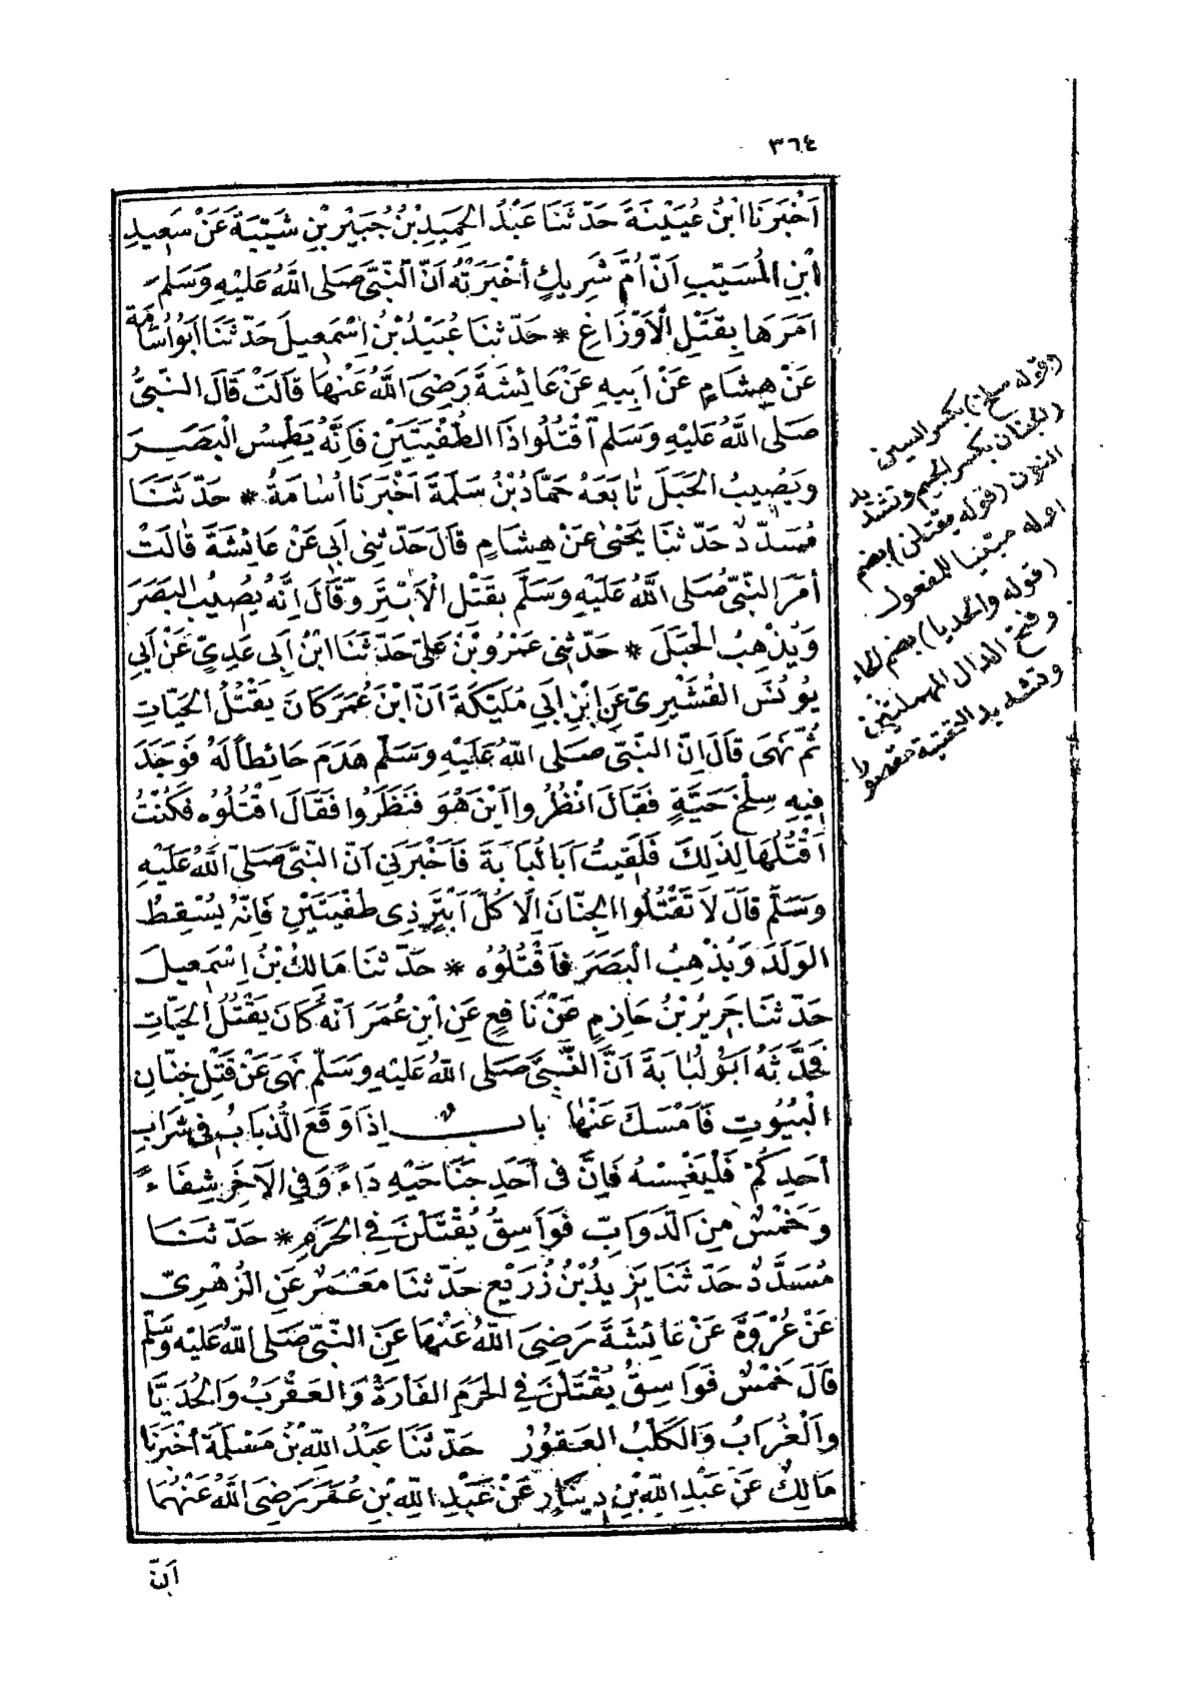 ٣٦٤
اَخْبَرَنَا ابْنُ عُيَيْنَةَ حَدَّثَنَا عَبْدُ الْحَمِيدِ بْنُ جُبَيْرِ بْنِ شَيْبَةَ عَنْ سَعِيدِ
ابْنِ الْمُسَيَّبِ اَنَّ اُمَّ شَرِيكٍ اَخْبَرَتْهُ اَنَّ النَّبِيَّ صَلَى اللَّهُ عَلَيْهِ وَسَلَّمَ
اَمَرَهَا بِقَتْلِ الْاَوْزَاغِ * حَدَّثَنَا عُبَيْدُ بْنُ اِسْمَعِيلَ حَدَّثَنَا اَبُو اُسَامَة
عَنْ هِشَامٍ عَنْ اَبِيهِ عَنْ عَائِشَةَ رَضِيَ اللَّهُ عَنْهَا قَالَتْ قَالَ النَّبِيُّ
صَلَى اللَّهُ عَلَيْهِ وَسَلَّمَ اقْتُلُوا ذَا الطُّفْيَتَيْنِ فَاِنَّهُ يَطْمِسُ الْبَصَرَ
وَيُصِيبُ الْحَبَلَ تَابَعَهُ حَمَّادُ بْنُ سَلَمَةَ اَخْبَرَنَا اُسَامَةُ * حَدَّثَنَا
مُسَدَّدٌ حَدَّثَنَا يَحْيَى عَنْ هِشَامٍ قَالَ حَدَّثَنِي اَبِي عَنْ عَائِشَةَ قَالَتْ
اَمَرَ النَّبِيُّ صَلَى اللَّهُ عَلَيْهِ وَسَلَّمَ بِقَتْلِ الْاَبْتَرِ وَقَالَ اِنَّهُ يُصِيبُ الْبَصَرَ
وَيُذْهِبُ الْحَبَلَ * حَدَّثَنِي عَمْرُو بْنُ عَلِيٍّ حَدَّثَنَا ابْنُ اَبِي عَدِيٍّ عَنْ اَبِي
يُونُسَ الْقُشَيْرِيِّ عَنِ ابْنِ اَبِي مُلَيْكَةَ اَنَّ ابْنَ عُمَرَ كَانَ يَقْتُلُ الْحَيَّاتِ
ثُمَّ نَهَى قَالَ اِنَّ النَّبِيَّ صَلَى اللَّهُ عَلَيْهِ وَسَلَّمَ هَدَمَ حَائِطًا لَهُ فَوَجَدَ
فِيهِ سِلْخَ حَيَّةٍ فَقَالَ انْظُرُوا اَيْنَ هُوَ فَنَظَرُوا فَقَالَ اقْتُلُوُه فَكُنْتُ
اَقْتُلُهَا لِذَلِكَ فَلَقِيتُ اَبَا لُبَابَةَ فَاَخْبَرَنِي اَنَّ النَّبِيَّ صَلَى اللَّهُ عَلَيْهِ
وَسَلَّمَ قَالَ لَا تَقْتُلُوا الْجِنَّانَ اِلَّا كُلَّ اَبْتَرَ ذِي طُفْيَتَيْنِ فَاِنَّهُ يُسْقِطُ
الْوَلَدَ وَيُذْهِبُ الْبَصَرَ فَاقْتُلُوُه * حَدَّثَنَا مَالِكُ بْنُ اِسْمَعِيلَ
حَدَّثَنَا جَرِيرُ بْنُ حَازِمٍ عَنْ نَافِعٍ عَنِ ابْنِ عُمَرَ اَنَّهُ كَانَ يَقْتُلُ الْحَيَّاتِ
فَحَدَّثَهُ اَبُو لُبَابَةَ اَنَّ النَّبِيَّ صَلَى اللَّهُ عَلَيْهِ وَسَلَّمَ نَهَى عَنْ قَتْلِ جِنَّانِ
الْبُيُوتِ فَاَمْسَكَ عَنْهَا بابٌ اِذَا وَقَعَ الذُّبَابُ فِي شَرَابِ
اَحَدِكُمْ فَلْيَغْمِسْهُ فَاِنَّ فِي اَحَدِ جَنَاحَيْهِ دَاءً وَفِي الْآخَرِ شِفَاءً
وَخَمْسٌ مِنَ الدَّوَابِّ فَوَاسِقُ يُقْتَلْنَ فِي الْحَرَمِ * حَدَّثَنَا
مُسَدَّدٌ حَدَّثَنَا يَزِيدُ بْنُ زُرَيْعٍ حَدَّثَنَا مَعْمَرٌ عَنِ الزُّهْرِيِّ
عَنْ عُرْوَةَ عَنْ عَائِشَةَ رَضِيَ اللَّهُ عَنْهَا عَنِ النَّبِيِّ صَلَى اللَّهُ عَلَيْهِ وَسَلَّمَ
قَالَ خَمْسٌ فَوَاسِقُ يُقْتَلْنَ فِي الْحَرَمِ الْفَارَةُ وَالْعَقْرَبُ وَالْحُدَيَّا
وَالْغُرَابُ وَالْكَلْبُ الْعَقُورُ حَدَّثَنَا عَبْدُ اللَّهِ بْنُ مَسْلَمَةَ اَخْبَرَنَا
مَالِكٌ عَنْ عَبْدِ اللَّهِ بْنِ دِينَارٍ عَنْ عَبْدِ اللَّهِ بْنِ عُمَرَ رَضِيَ اللَّهُ عَنْهُمَا
اَنَّ
(قوله سلخ) بكسر السين
(الجنان بكسر الجيم وتشديد
النون (قوله يقتلن) بضم
اوله مبنيا للمفعول
(قوله والحديا) بضم الحاء
وفتح الدال المهملتين
وتشديد التحتية مقصورا